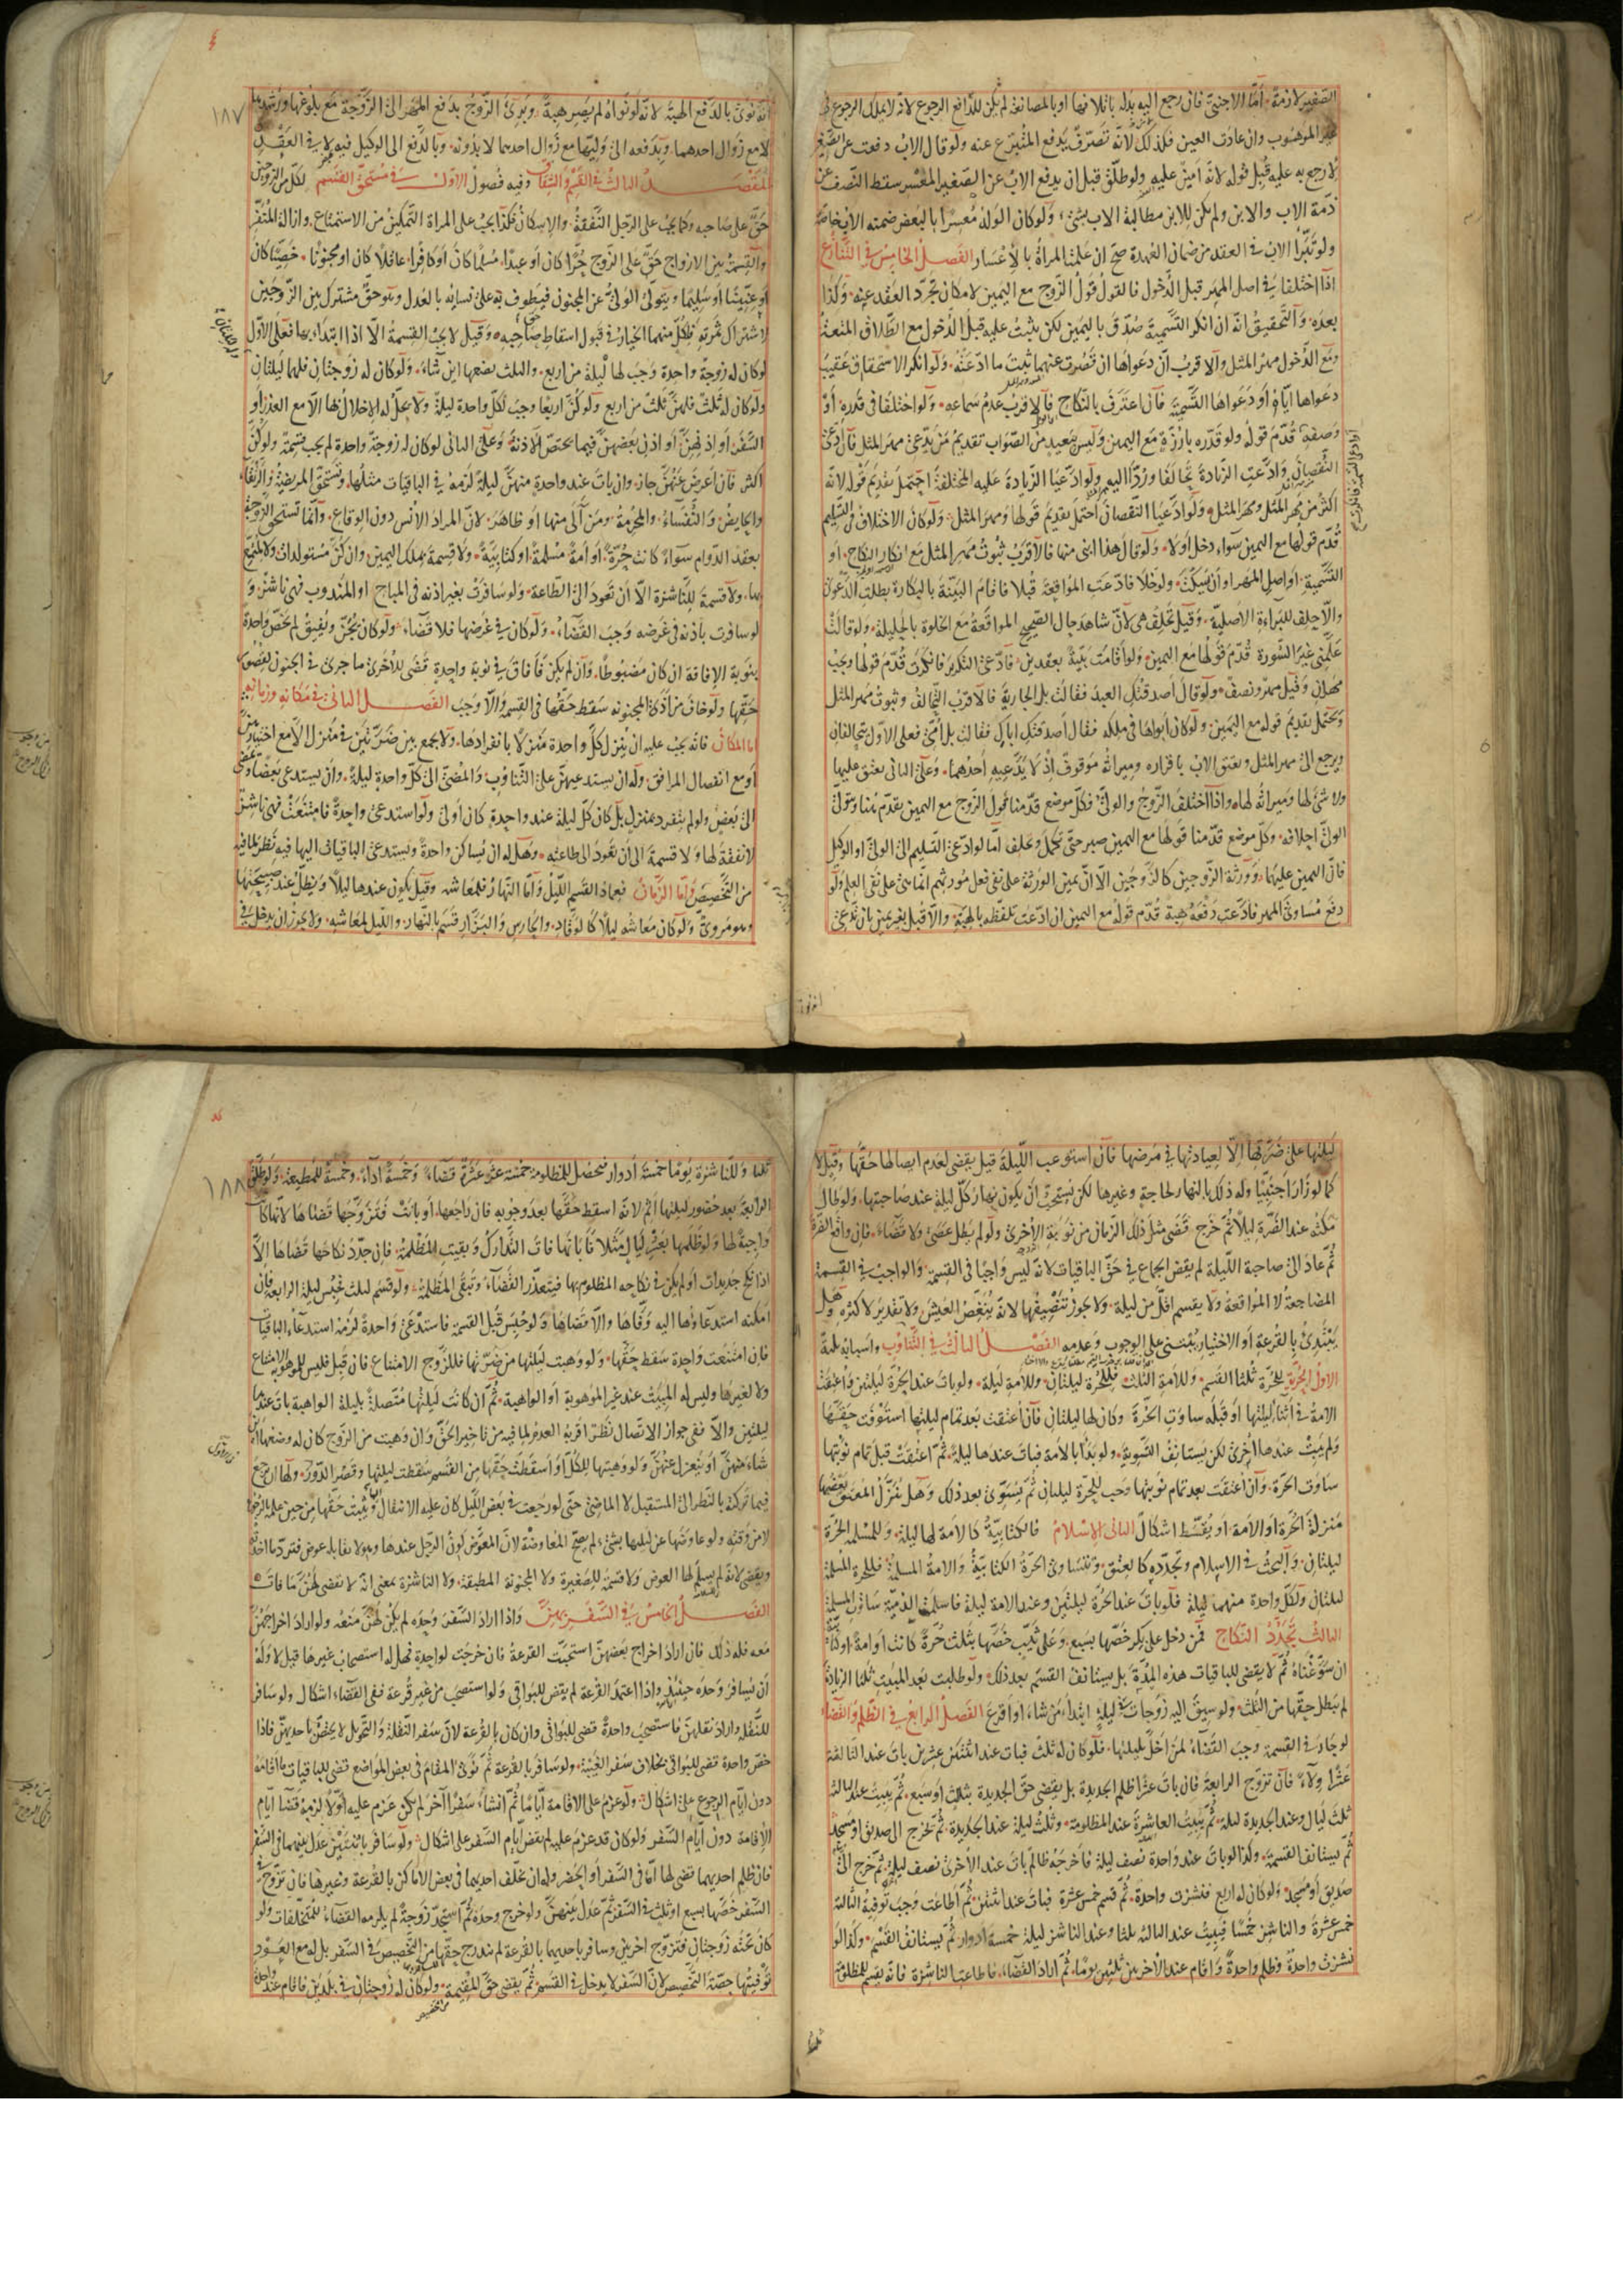 الصغير لازمة اما الاجنبي فان رجع اليه بدله باتلافها او بالمصانعة لم يكن للدافع الرجوع لانه لا يملك الرجوع في
الموهوب وان عادت العين فكذلك لانه تصرف يدفع المتبرع عنه ولو قال الاب دفعت عن الصغير
لارجع به عليه قبل قوله لانه امين عليه ولو طلق قبل ان يدفع الاب عن الصغير المعسر سقط النصف عن
ذمة الاب والابن ولم يكن للابن مطالبة الاب بشئ ولو كان الولد معسرا بالبعض ضمنه الاب خاصة
ولو تبرا الاب في العقد من ضمان العهدة صح ان علمت المراة بالاعسار الفصل الخامس في التنازع
اذا اختلفا في اصل المهر قبل الدخول فالقول قول الزوج مع اليمين لامكان تجرد العقد عنه وكذا
بعده والتحقيق انه ان انكر التسمية صدق باليمين لكن يثبت عليه قبل الدخول مع الطلاق المتعة
ومع الدخول مهر المثل والاقرب ان دعواها ان قصرت عنهما ثبت ما ادعته ولو انكر الاستحقاق عقيب
دعواها اياه او دعواها التسمية فان اعترف بالنكاح فالاقرب عدم سماعه ولو اختلفا في قدره او
وصفه قدم قوله ولو قدره بارزة مع اليمين وليس ببعيد من الصواب تقديم من يدعي مهر المثل فان ادعى
النقصان وادعت الزيادة تحالفا وردا اليه ولو ادعيا الزيادة عليه المختلفة احتمل تقديم قوله لانه
اكثر من مهر المثل ومهر المثل ولو ادعيا النقصان احتمل تقديم قولها ومهر المثل ولو كان الاختلاف في التسليم
قدم قولها مع اليمين سواء دخل اولا ولو قال هذا ابني منها فالاقرب ثبوت مهر المثل مع انكار النكاح او
التسمية او اصل المهر او ان يسكت ولو خلا فادعت المواقعة قبلا فاقام البينة بالبكارة بطلت الدعوى
والا حلف للبراءة الاصلية وقيل تحلف هي لان شاهد حال الصحيح المواقعة مع الخلوة بالحليلة ولو قالت
علمني غير السورة قدم قولها مع اليمين ولو اقامت بينة بعقدين فادعى التكرير فانكرت قدم قولها ويجب
مهران وقيل مهر ونصف ولو قال اصدقتك العبد فقالت بل الجارية فالاقرب التحالف وثبوت مهر المثل
ويحتمل تقديم قوله مع اليمين ولو كان ابواها في ملكه فقال اصدقتك اباك فقالت بل امي فعلى الاول يتحالفان
ويرجع الى مهر المثل ويعتق الاب باقراره وميراثه موقوف اذ لا يدعيه احدهما وعلى الثاني يعتق عليها
ولا شئ لها وميراثه لها واذا اختلف الزوج والولي فكل موضع قدمنا قول الزوج مع اليمين يقدم هنا ويتولى
الولي احلافه وكل موضع قدمنا قولها مع اليمين صبر حتى تكمل وتحلف اما لو ادعى التسليم الى الولي او الوكيل
فان اليمين عليهما وورثة الزوجين كالزوجين الا ان يمين الورثة على نفي فعل مورثهم انما هي على نفي العلم ولو
دفع مساوي المهر فادعت دفعه هبة قدم قوله مع اليمين ان ادعت تلفظه بالهبة والا قبل بغير يمين بان تدعي
١٨٧
انه نوى بالدفع الهبة لانه لو نواه لم يصر هبة ويبرئ الزوج بدفع المهر الى الزوجة مع بلوغها ورشدها
لا مع زوال احدهما وبدفعه الى وليها مع زوال احدهما لا بدونه وبالدفع الى الوكيل فيه لا في العقد
المقصد الثالث في القسم والشقاق وفيه فصول الاول في مستحق القسم لكل من الزوجين
حق على صاحبه وكما يجب على الرجل النفقة والاسكان فكذا يجب على المراة التمكين من الاستمتاع وازالة المنفر
والقسمة بين الازواج حق على الزوج حرا كان او عبدا مسلما كان او كافرا عاقلا كان او مجنونا خصيا كان
او عنينا او سليما ويتولى الولي عن المجنون فيطوف به على نسائه بالعدل وهو حق مشترك بين الزوجين
لاشتراك ثمرته فلكل منهما الخيار في قبول اسقاط صاحبه وقيل لا يجب القسمة الا اذا ابتدا بها فعلى الاول
لو كان له زوجة واحدة وجب لها ليلة من اربع والثلث يضعها اين شاء ولو كان له زوجتان فلهما ليلتان
ولو كان له ثلث فلهن ثلث من اربع ولو كن اربعا وجب لكل واحدة ليلة ولا يحل له الاخلال بها الا مع العذر او
السفر او اذنهن او اذن بعضهن فيما يختص الاذنة وعلى الثاني لو كان له زوجة واحدة لم يجب قسمة ولو كن
اكثر فان اعرض عنهن جاز وان بات عند واحدة منهن ليلة لزمه في الباقيات مثلها وتستحق المريضة والرتقاء
والحايض والنفساء والمحرمة ومن آلى منها او ظاهر لان المراد الانس دون الوقاع وانما تستحق الزوجة
بعقد الدوام سواء كانت حرة او امة مسلمة او كتابية ولا قسمة بملك اليمين وان كن مستولدات ولا لمتمتع
بها ولا قسمة للناشزة الا ان تعود الى الطاعة ولو سافرت بغير اذنه في المباح او المندوب فهي ناشز و
لو سافرت باذنه في غرضه وجب القضاء ولو كان في غرضها فلا قضاء ولو كان يجن ويفيق لم يخص واحدة
بنوبة الافاقة ان كان مضبوطا وان لم يكن فافاق في نوبة واحدة قضى للاخرى ما جرى في الجنون لنقصوص
حقها ولو خاف من اذى المجنونة سقط حقها في القسم والا وجب الفصل الثاني في مكانه وزمانه
اما المكان فانه يجب عليه ان ينزل كل واحدة منزلا بانفرادها ولا يجمع بين ضرتين في منزل الا مع اختيارهن
او مع انفصال المرافق وله ان يستدعيهن على التناوب والمضي الى كل واحدة ليلة وان يستدعي بعضا ويمضي
الى بعض ولو لم ينفرد بمنزل بل كان كل ليلة عند واحدة كان اولى ولو استدعى واحدة فامتنعت فهي ناشز
لا نفقة لها ولا قسمة الى ان تعود الى طاعته وهل له ان يساكن واحدة ويستدعي الباقيات اليها فيه نظر لما فيه
من التخصيص واما الزمان فعماد القسم الليل واما النهار فلمعاشه وقيل يكون عندها ليلا ويظل عند صبيحتها
وهو مروي ولو كان معاشه ليلا كالوقاد والحارس والبزار قسم بالنهار والليل لمعاشه ولا يجوز ان يدخل في
ليلتها على ضرتها الا لعيادتها في مرضها فان استوعب الليلة قيل يقضي لعدم ايصالها حقها وقيل لا
كما لو زار اجنبيا وله ذلك بالنهار لحاجة وغيرها لكن يستحب ان يكون نهار كل ليلة عند صاحبتها ولو طال
مكثه عند الضرة ليلا ثم خرج قضى مثل ذلك الزمان من نوبة الاخرى ولو لم يطل عصى ولا قضاء فان واقع الضرة
ثم عاد الى صاحبة الليلة لم يقض الجماع في حق الباقيات لانه ليس واجبا في القسمة والواجب في القسمة
المضاجعة لا المواقعة ولا يقسم اقل من ليلة ولا يجوز تنصيفها لانه ينغص العيش ولا تقدير لاكثره وهل
يبتدئ بالقرعة او الاختيار يبتني على الوجوب وعدمه الفصل الثالث في التفاوت واسبابه ثلثة
الاول الحرية للحرة ثلثا القسم وللامة الثلث فللحرة ليلتان وللامة ليلة ولو بات عند الحرة ليلتين واعتقت
الامة في اثناء ليلتها او قبله ساوت الحرة وكان لها ليلتان فان اعتقت بعد تمام ليلتها استوفت حقها
ولم يبت عندها اخرى لكن يستانف التسوية ولو بدا بالامة فبات عندها ليلة ثم اعتقت قبل تمام نوبتها
ساوت الحرة وان اعتقت بعد تمام نوبتها وجب للحرة ليلتان ثم يسوي بعد ذلك وهل ينزل المعتق بعضها
منزلة الحرة او الامة او يقسط اشكال الثاني الاسلام فالكتابية كالامة لها ليلة وللمسلمة الحرة
ليلتان والبحث في الاسلام وتجدده كالعتق وتتساوى الحرة الكتابية والامة المسلمة فللحرة المسلمة
ليلتان ولكل واحدة منهما ليلة فلو بات عند الحرة ليلتين وعند الامة ليلة فاسلمت الذمية ساوت المسلمة
الثالث تجدد النكاح فمن دخل على بكر خصها بسبع وعلى ثيب خصها بثلث حرة كانت او امة
ان سوغناه ثم لا يقضي للباقيات هذه المدة بل يستانف القسم بعد ذلك ولو طلبت بعد المبيت ثلثا الزيادة
لم يبطل حقها من الثلث ولو سيق اليه زوجات في ليلة ابتدا من شاء او اقرع الفصل الرابع في الظلم والقضاء
لو جار في القسمة وجب القضاء لمن اخل بليلتها فلو كان له ثلث فبات عند اثنتين عشرين بات عند الثالثة
عشرا ولاء فان تزوج الرابعة فان بات عشرا ظلم الجديدة بل يقضي حق الجديدة بثلث او سبع ثم يبيت عند الثالثة
ثلث ليال وعند الجديدة ليلة ثم يبيت العاشرة عند المظلومة وثلث ليلة عند الجديدة ثم تخرج الى صديق او مسجد
ثم يستانف القسمة وكذا لو بات عند واحدة نصف ليلة فاخرجه ظالم بات عند الاخرى نصف ليلة ثم خرج الى
صديق او مسجد ولو كان له اربع فنشزت واحدة ثم قسم خمس عشرة فبات عند اثنتين ثم اطاعت وجب توفية الثالثة
خمس عشرة والناشز خمسا فيبيت عند الثالثة ثلثا وعند الناشز ليلة خمسة ادوار ثم يستانف القسم وكذا لو
نشزت واحدة وظلم واحدة واقام عند الاخريين ثلثين يوما ثم اراد القضاء فاطاعت الناشزة فانه يقسم للمظلومة
١٨٨
ثلثا وللناشزة يوما خمسة ادوار فتحصل للمظلومة خمسة عشر عشرة قضاء وخمسة اداء وخمسة للمطيعة ولو طلق
الرابعة بعد حضور ليلتها اثم لانه اسقط حقها بعد وجوبه فان راجعها او بانت فتزوجها قضاها لانها كانت
واجبة لها ولو ظلمها بعشر ليال مثلا فابانها فات التدارك وبقيت المظلمة فان جدد نكاحها قضاها الا
اذا نكح جديدات او لم يكن في نكاحه المظلوم بها فيتعذر القضاء وتبقى المظلمة ولو قسم لثلث فحبس ليلة الرابعة فان
امكنه استدعاؤها اليه وفاها والا قضاها ولو حبس قبل القسمة فاستدعى واحدة لزمه استدعاء الباقيات
فان امتنعت واحدة سقط حقها ولو وهبت ليلتها من ضرتها فللزوج الامتناع فان قبل فليس للموهوبة الامتناع
ولا لغيرها وليس له المبيت عند غير الموهوبة او الواهبة ثم ان كانت ليلتها متصلة بليلة الواهبة بات عندها
ليلتين والا ففي جواز الاتصال نظر اقربه العدم لما فيه من تاخير الحق وان وهبت من الزوج كان له وضعها اين
شاء منهن او ينعزل عنهن ولو وهبتها للكل او اسقطت حقها من القسم سقطت ليلتها وقصر الدور ولها ان ترجع
فيما تركته بالنظر الى المستقبل لا الماضي حتى لو رجعت في بعض الليل كان عليه الانتقال ويثبت حقها من حين علمه بالرجوع
لا من وقته ولو عاوضها عن ليلتها بشئ لم يصح المعاوضة لان المعوض كون الرجل عندها وهو لا يقابله عوض فترد ما اخذته
ويقضي لانه لم يسلم لها العوض ولا قسمة للصغيرة ولا المجنونة المطبقة ولا الناشزة بمعنى انه لا يقضي لهن ما فات
الفصل الخامس في السفر بهن واذا اراد السفر وحده لم يكن لهن منعه ولو اراد اخراجهن
معه فله ذلك فان اراد اخراج بعضهن استحبت القرعة فان خرجت لواحدة فهل له استصحاب غيرها قيل لا وله
ان يسافر وحده حينئذ واذا اعتمد القرعة لم يقض للبواقي ولو استصحب من غير قرعة ففي القضاء اشكال ولو سافر
للنقلة واراد نقلهن فاستصحب واحدة قضى للبواقي وان كان بالقرعة لان سفر النقلة والتحويل لا يختص باحديهن فاذا
خص واحدة قضى للبواقي بخلاف سفر الغيبة ولو سافر بالقرعة ثم نوى المقام في بعض المواضع قضى للباقيات ما اقامه
دون ايام الرجوع على اشكال ولو عزم على الاقامة اياما ثم انشا سفرا آخر لم يكن عزم عليه اولا لزمه قضا ايام
الاقامة دون ايام السفر ولو كان قد عزم عليه لم يقض ايام السفر على اشكال ولو سافر باثنتين عدل بينهما في السفر
فان ظلم احديهما قضى لها اما في السفر او الحضر وله ان يخلف احديهما في بعض الاماكن بالقرعة وغيرها فان تزوج في
السفر خصها بسبع او ثلث في السفر ثم عدل بينهن ولو خرج وحده ثم استجد زوجة لم يلزمه القضاء للمتخلفات ولو
كان تحته زوجتان فتزوج اخريين وسافر باحديهما بالقرعة لم يندرج حقها من التخصيص في السفر بل له مع العود
توفيتها حصة التخصيص لان السفر لا يدخل في القسم ثم يقضي حق المقيمة ولو كان له زوجتان في بلدين فاقام عند واحدة